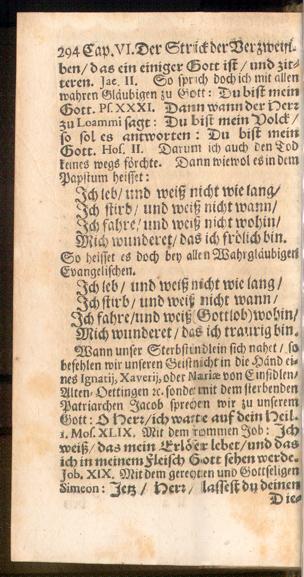 294 Cap. VI. Der Strick der Verzweifl.
ben/ das ein einiger Gott ist/ und zit-
teren. Jac. II. So sprich doch ich mit allen
wahren Gläubigen zu Gott: Du bist mein
Gott. Ps. XXXI. Dann wann der Herr
zu Loammi sagt: Du bist mein Volck/
so sol es antworten: Du bist mein
Gott. Hos. II. Darum ich auch den Tod
keines wegs förchte. Dann wiewol es in dem
Papstum heisset:
Ich leb/ und weiß nicht wie lang/
Ich stirb/ und weiß nicht wann/
Ich fahre/ und weiß nicht wohin/
Mich wunderet/ das ich frölich bin.
So heisset es doch bey allen Wahrgläubigen
Evangelischen.
Ich leb/ und weiß nicht wie lang/
Ich stirb/ und weiß nicht wann/
Ich fahre/ und weiß (Gottlob) wohin/
Mich wunderet/ das ich traurig bin.
Wann unser Sterbstündlein sich nahet/ so
befehlen wir unseren Geist nicht in die Händ ei-
nes Ignatij, Xaverij, oder Mariæ von Einsidlen/
Alten-Oettingen ꝛc. sonder mit dem sterbenden
Patriarchen Jacob sprechen wir zu unserem
Gott: O Herr/ ich warte auf dein Heil.
1. Mos. XLIX. Mit dem frommen Job: Ich
weiß/ das mein Erlöser lebet/ und das
ich in meinem Fleisch Gott sehen werde.
Job. XIX. Mit dem gerechten und Gottseligen
Simeon: Jetz/ Herr/ lassest du deinen
Die-